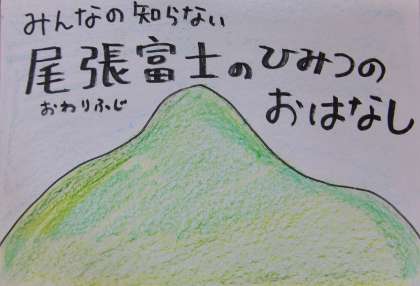 みんなの知らない
尾張富士のひみつの
おわりふじ
おはなし